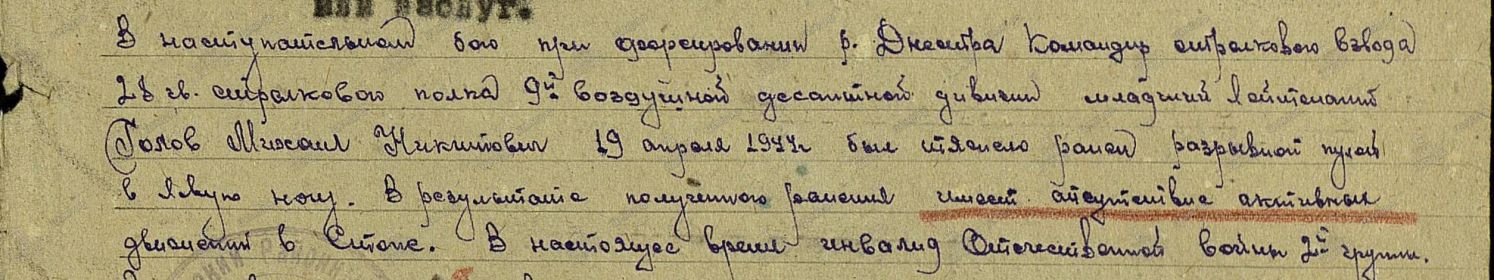 или заслуг.
В наступательном бою при форсировании р. Днестра Командир стрелкового взвода
28 гв. стрелкового полка 9й воздушной десантной дивизии младший лейтенант
Голов Михаил Никитович 19 апреля 1944г был тяжело ранен разрывной пулей
в левую ногу. В результате полученного ранения имеет отсутствие активных
движений в стопе. В настоящее время инвалид Отечественной войны 2й группы.